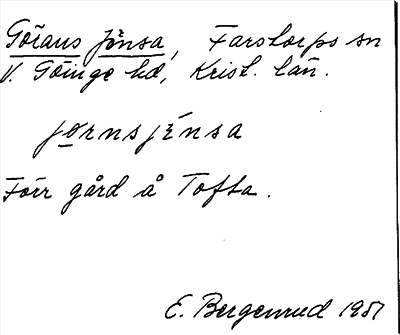 Görans Jönsa, Farstorps sn
V. Göinge hd, Krist. län.
Förr gård å Tofta.
E. Bergenrud 1951